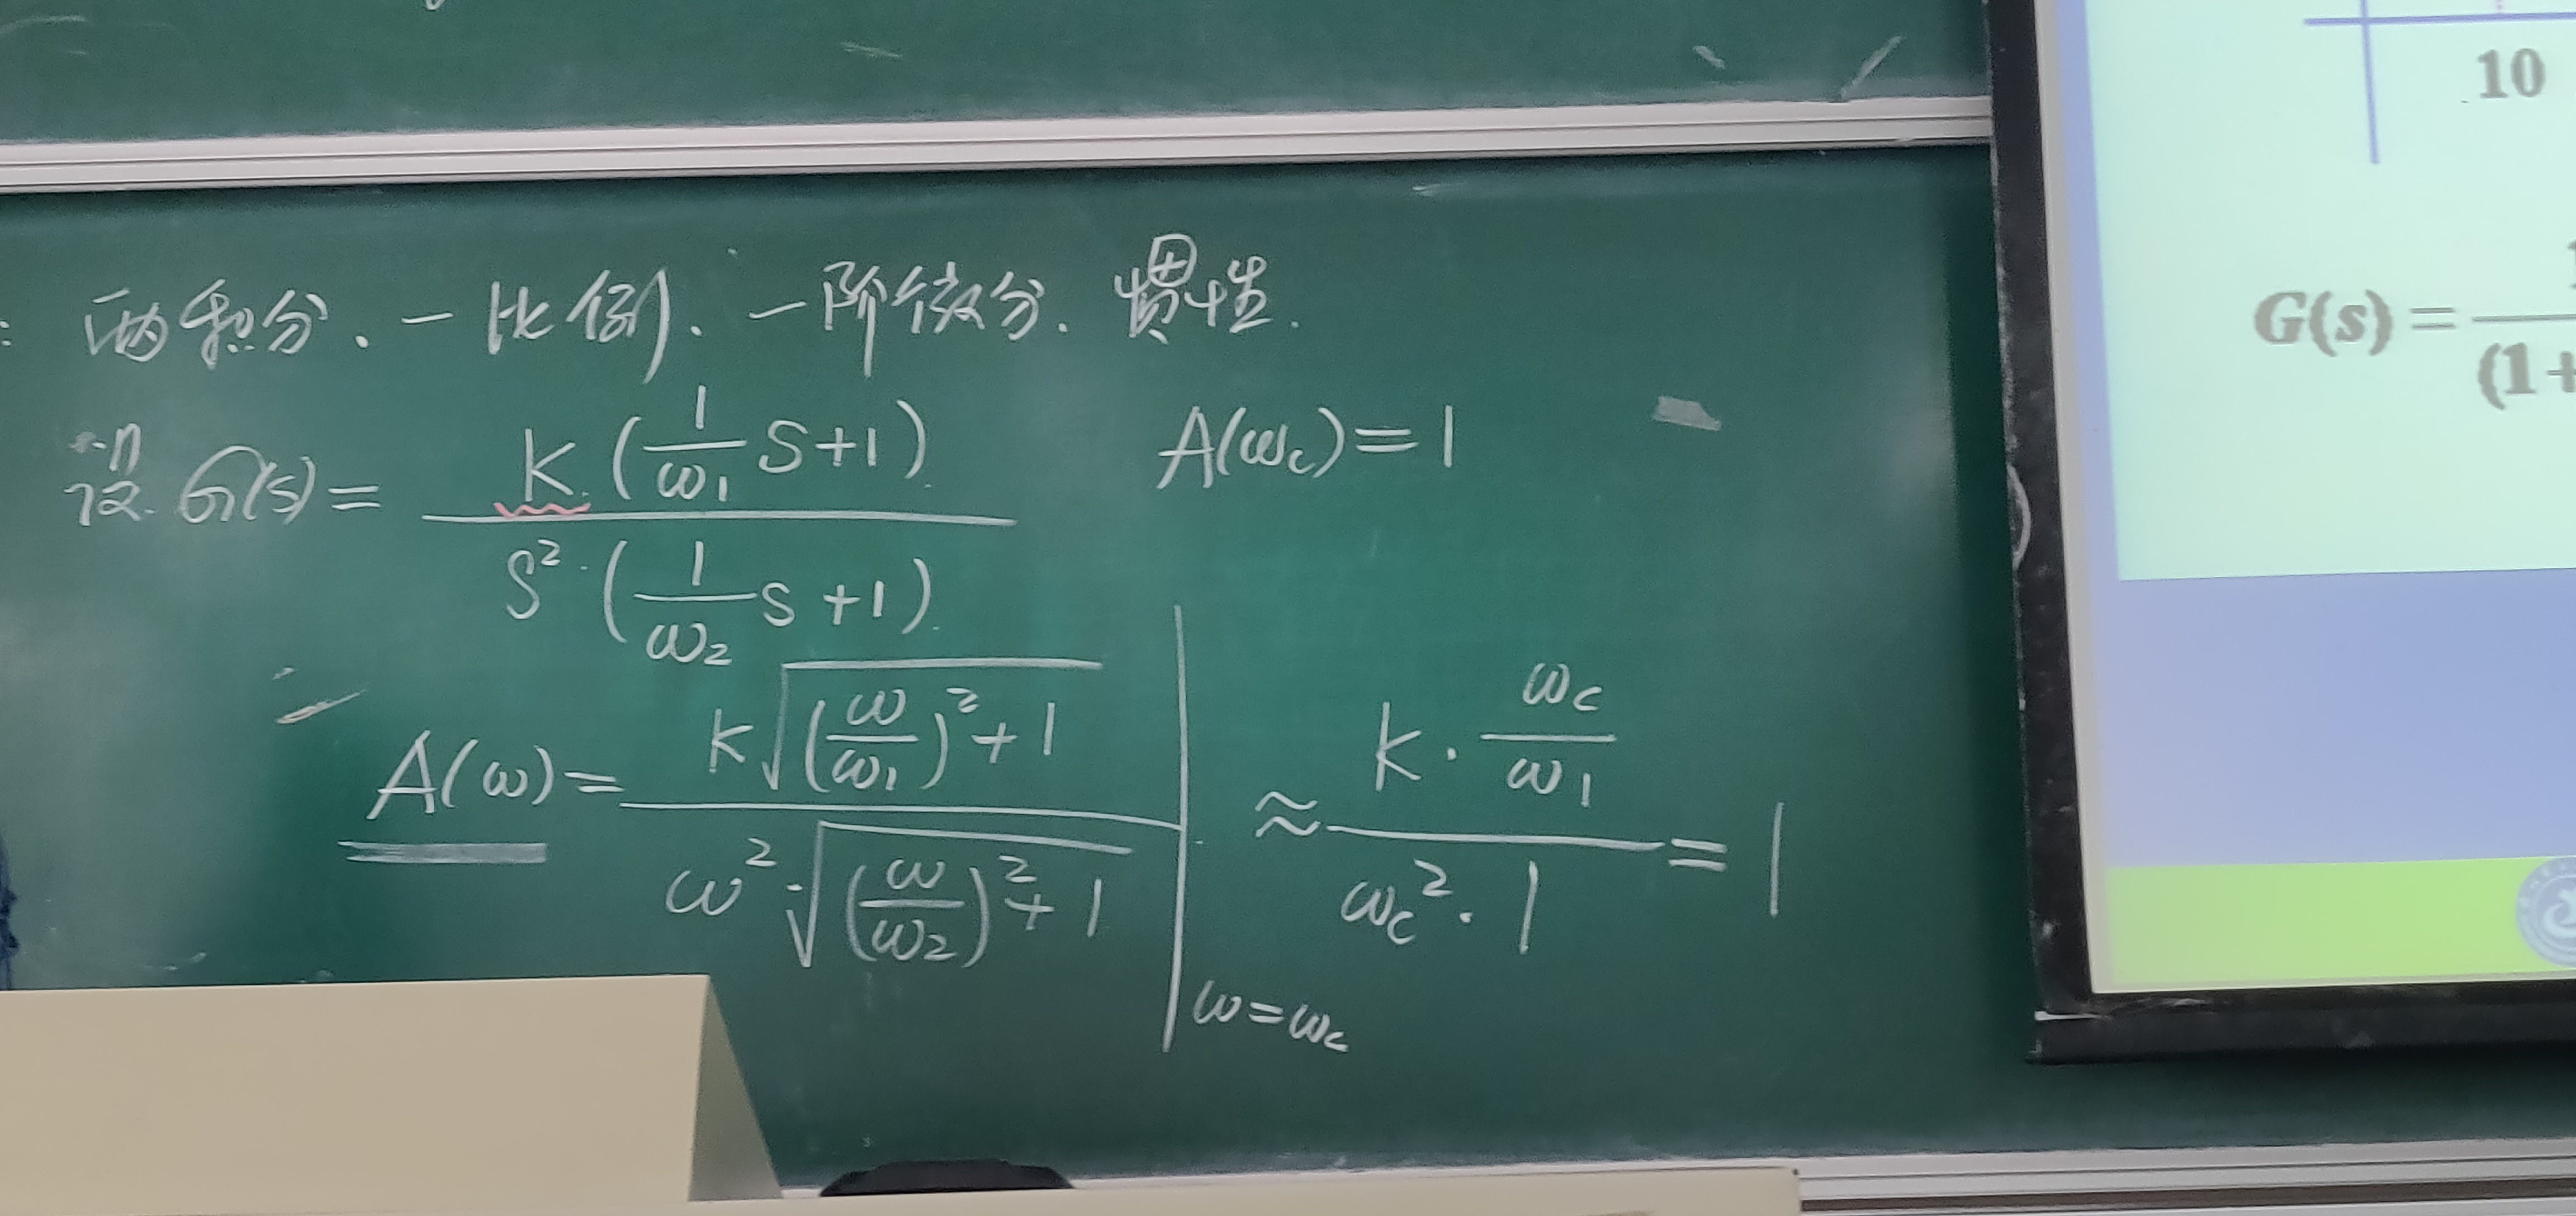 : 两积分、一比例、一阶微分、惯性.
设. G(s) = K.(1/ω₁ S+1) / S²·(1/ω₂ s+1)
A(ωc)=1
A(ω) = k√((ω/ω₁)²+1) / ω²·√((ω/ω₂)²+1) | ω=ωc ≈ k·ωc/ω₁ / ωc²·1 = 1
10
G(s) =
(1+